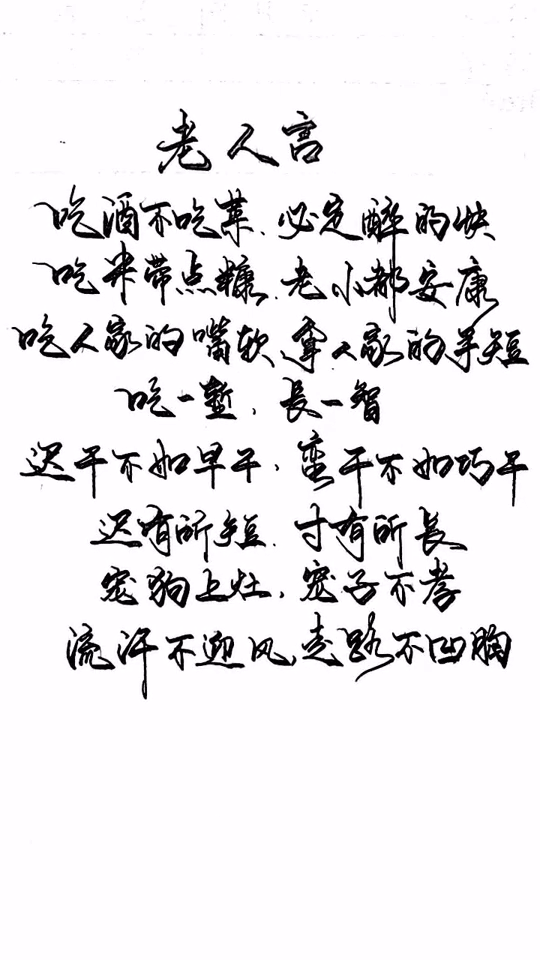 老人言
吃酒不吃菜、必定醉的快
吃米带点糠、老小都安康
吃人家的嘴软、拿人家的手短
吃一堑、長一智
迟干不如早干、蛮干不如巧干
迟有所短、寸有所長
宠狗上灶、宠子不孝
流汗不迎风、走路不凹胸